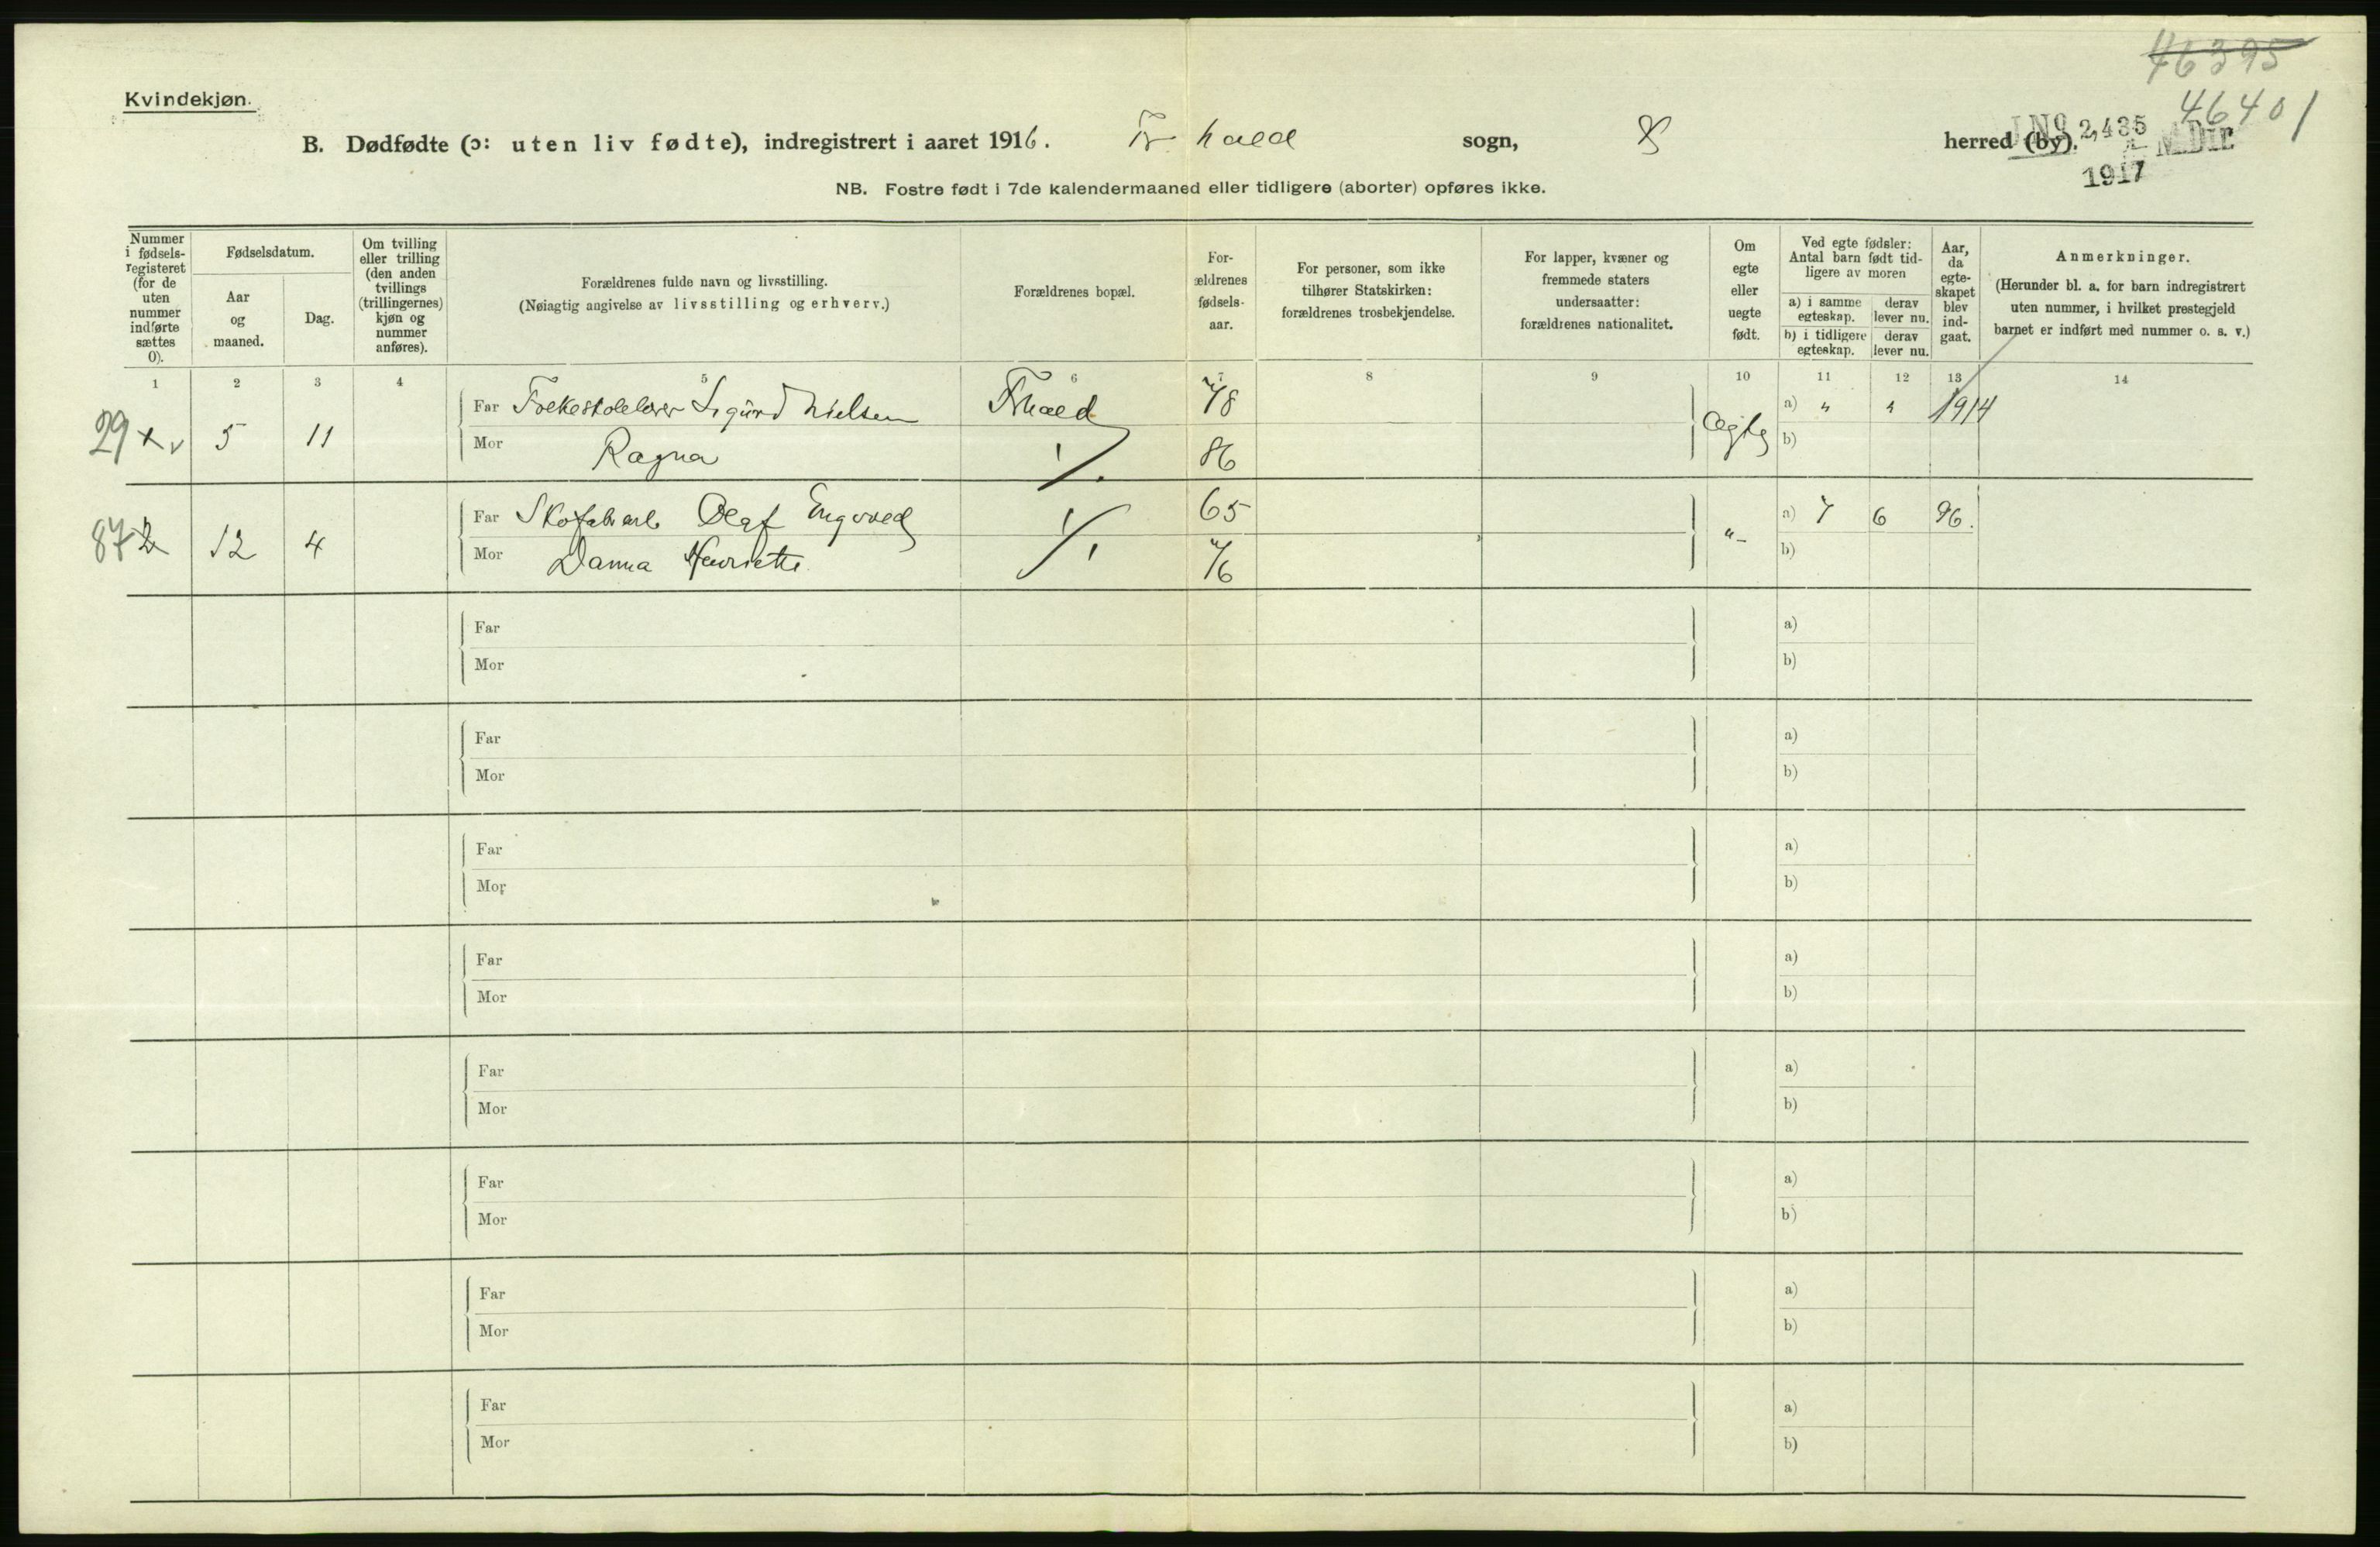 46395
46401
Kvindekjøn.
B. Dødfødte (ɔ: uten liv fødte), indregistrert i aaret 1916. Fr. hald sogn, herred (by).
J.No 2,435
M.Dir
1917
NB. Fostre født i 7de kalendermaaned eller tidligere (aborter) opføres ikke.
Nummer i fødsels-registeret (for de uten nummer indførte sættes 0).
Fødselsdatum.
Aar og maaned.
Dag.
Om tvilling eller trilling (den anden tvillings (trillingernes) kjøn og nummer anføres).
Forældrenes fulde navn og livsstilling.
(Nøiagtig angivelse av livsstilling og erhverv.)
Forældrenes bopæl.
For-ældrenes fødsels-aar.
For personer, som ikke tilhører Statskirken: forældrenes trosbekjendelse.
For lapper, kvæner og fremmede staters undersaatter: forældrenes nationalitet.
Om egte eller uegte født.
Ved egte fødsler: Antal barn født tid-ligere av moren
a) i samme egteskap.
derav lever nu.
b) i tidligere egteskap.
derav lever nu.
Aar, da egte-skapet blev ind-gaat.
Anmerkninger.
(Herunder bl. a. for barn indregistrert uten nummer, i hvilket prestegjeld barnet er indført med nummer o. s. v.)
1 2 3 4 5 6 7 8 9 10 11 12 13 14
29 5 11 Far Folkeskolelærer Sigurd Nielsen Frhald 78 Ægte a) " " 1914
Mor Ragna 86 b)
87 2 12 4 Far Skofabark Olaf Engvold 65 "- a) 7 6 96.
Mor Danna Henriette 76 b)
Far a)
Mor b)
Far a)
Mor b)
Far a)
Mor b)
Far a)
Mor b)
Far a)
Mor b)
Far a)
Mor b)
Far a)
Mor b)
Far a)
Mor b)